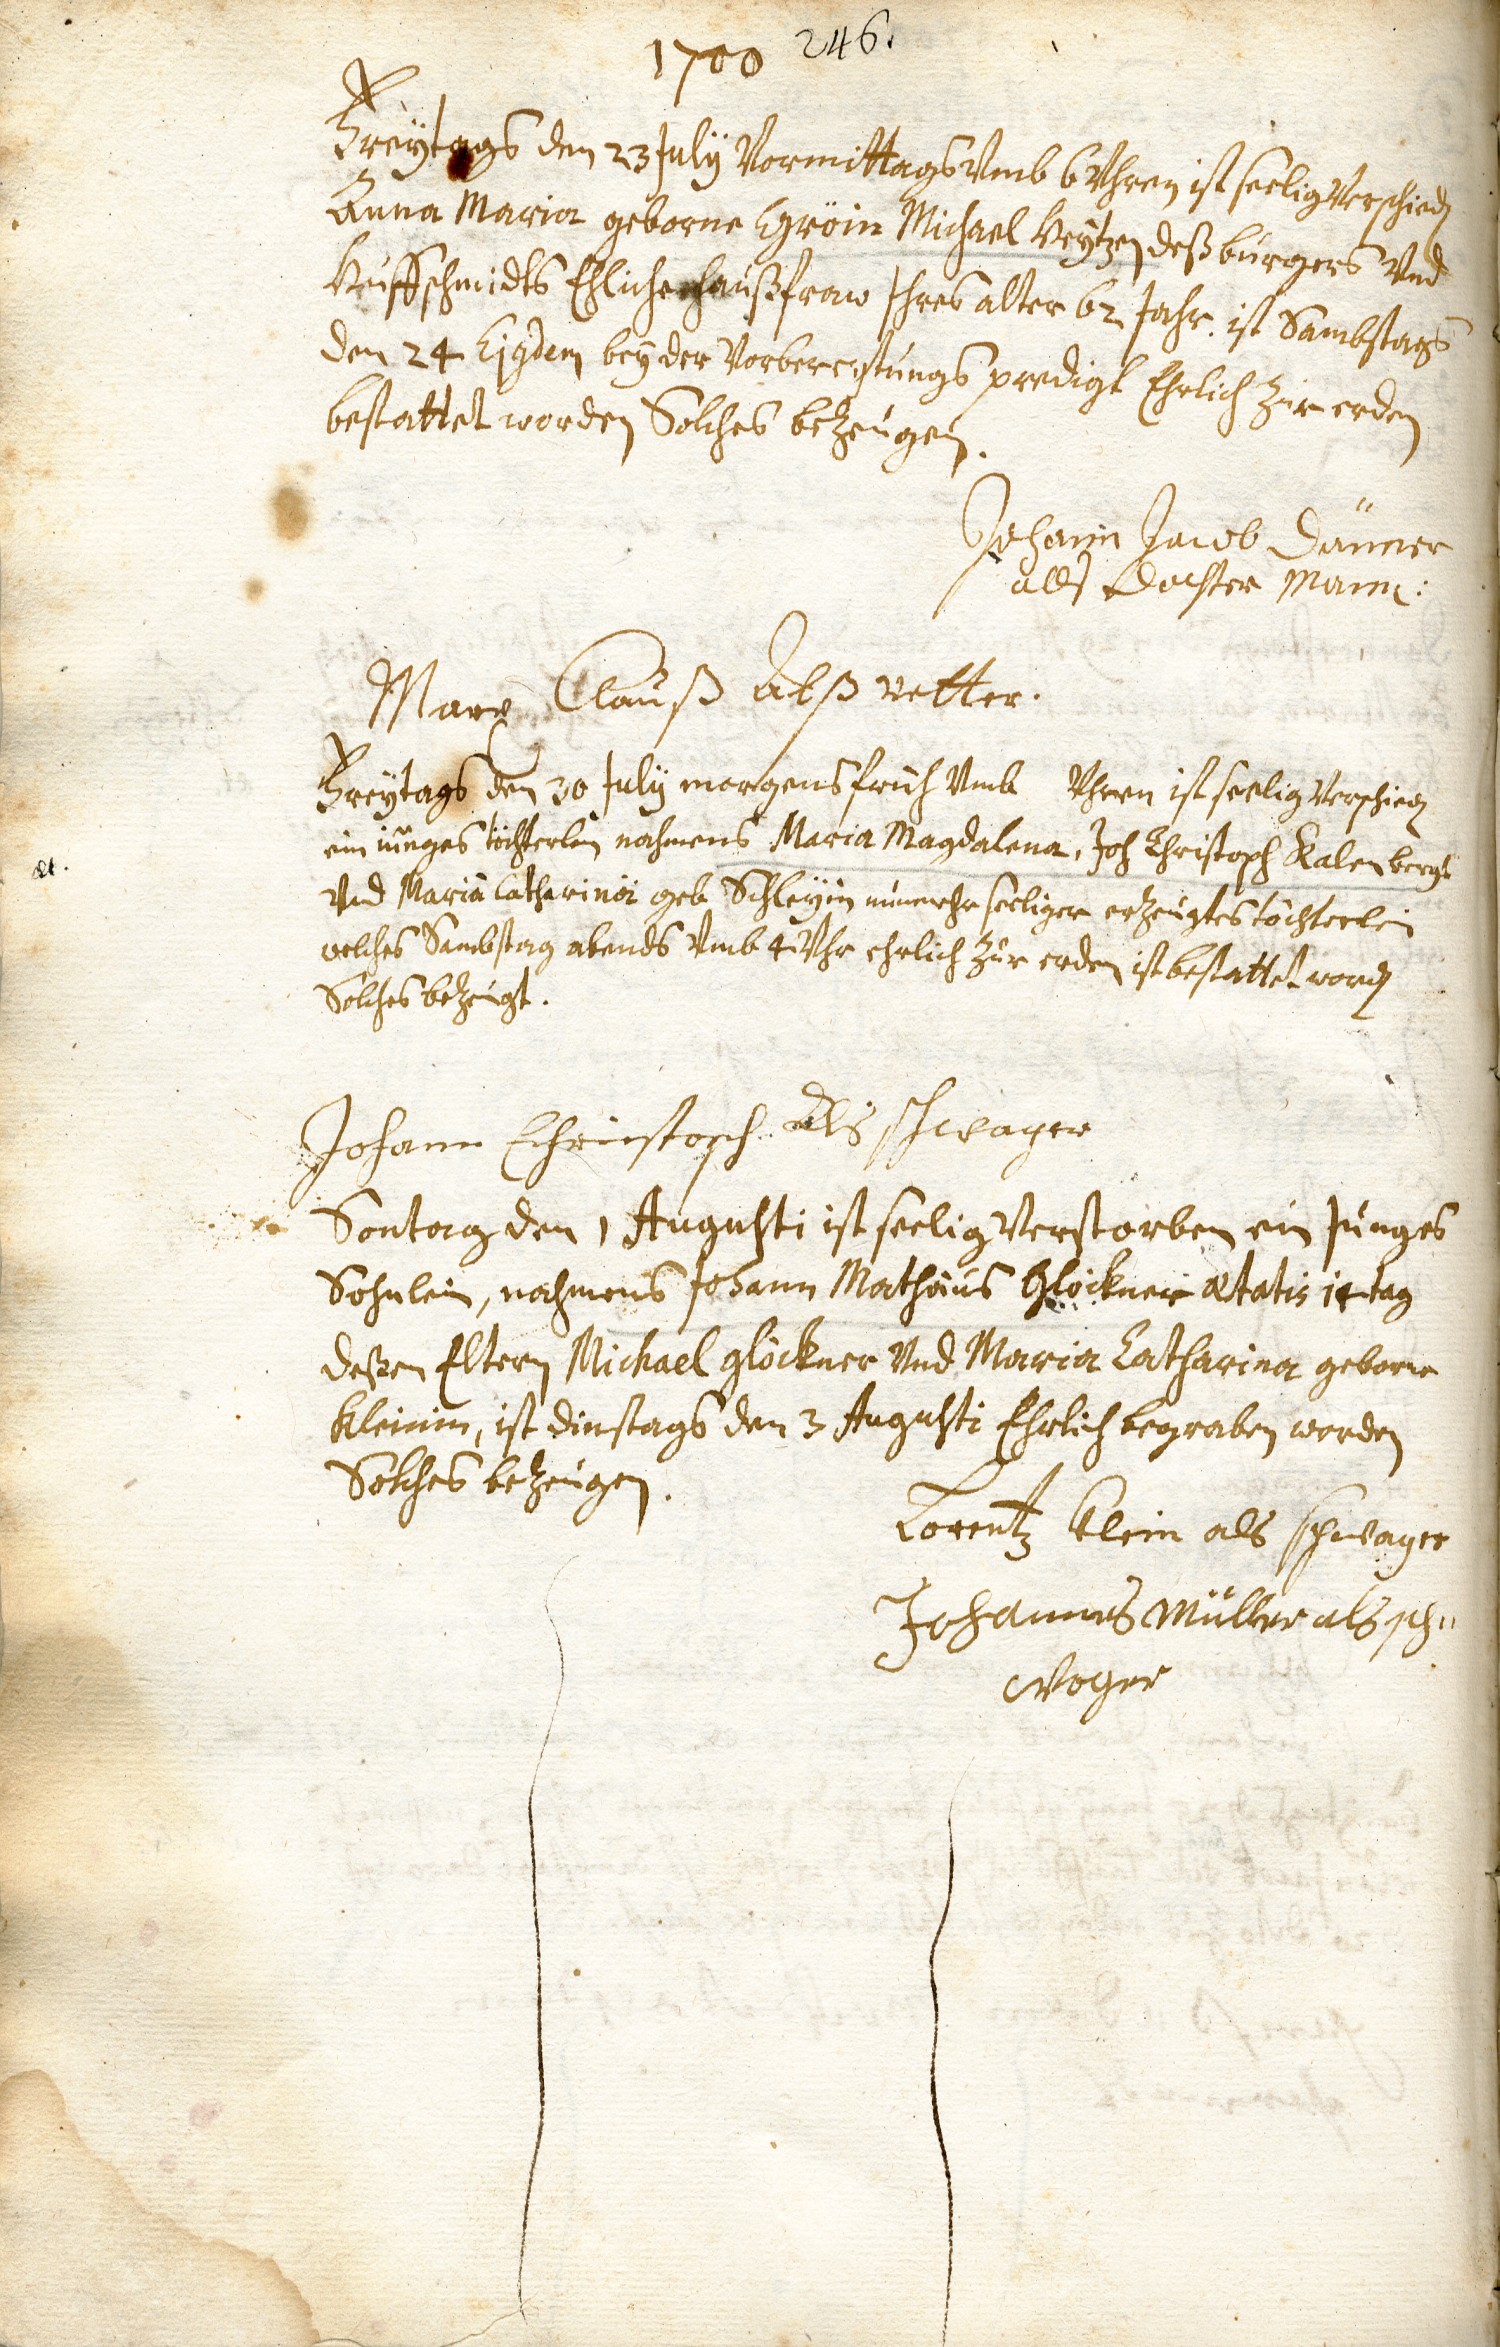 1700 246.
Freÿtags den 23 Julÿ Vormittags Vmb 6 Vhren ist seelig Verschied
Anna Maria geborne Michael Keÿtzen deß burgers Vnd
Huffschmidts Ehliche haußfraw Ihres alter 62 Jahr. ist Sambstags
den 24 Ejusdem beÿ der Vorbereitungs predigt Ehrlich zur erden
bestattet worden Solches bezeugen.
Johann Jacob Dänner
alls Dochter Mann:
Marx Clauß Alß vetter.
Freÿtags den 30 Julÿ morgens früh Vmb Vhren ist seelig Verschied
ein junges töchterlein nahmens Maria Magdalena, Joh Christoph Kalenbergs
æt.
Vnd Maria Catharinä geb Schleÿin nunmehr seeliger erzeugtes töchterlein
welches Sambstag abends Vmb 4 Vhr ehrlich zur erden ist bestattet word
Solches bezeugt.
Johann Christoph Als schwager
Sontag den 1 Augusti ist seelig Verstorben ein Junges
Söhnlein, nahmens Johann Mathäus Glöckner ætatis 14 tag
deßen Eltern Michael glöckner Vnd Maria Catharina geborne
Kleinin, ist dinstags den 3 Augusti Ehrlich begraben worden
Solches bezeugen.
Lorentz Klein als schwager
Johannes Müller als sch=
wager